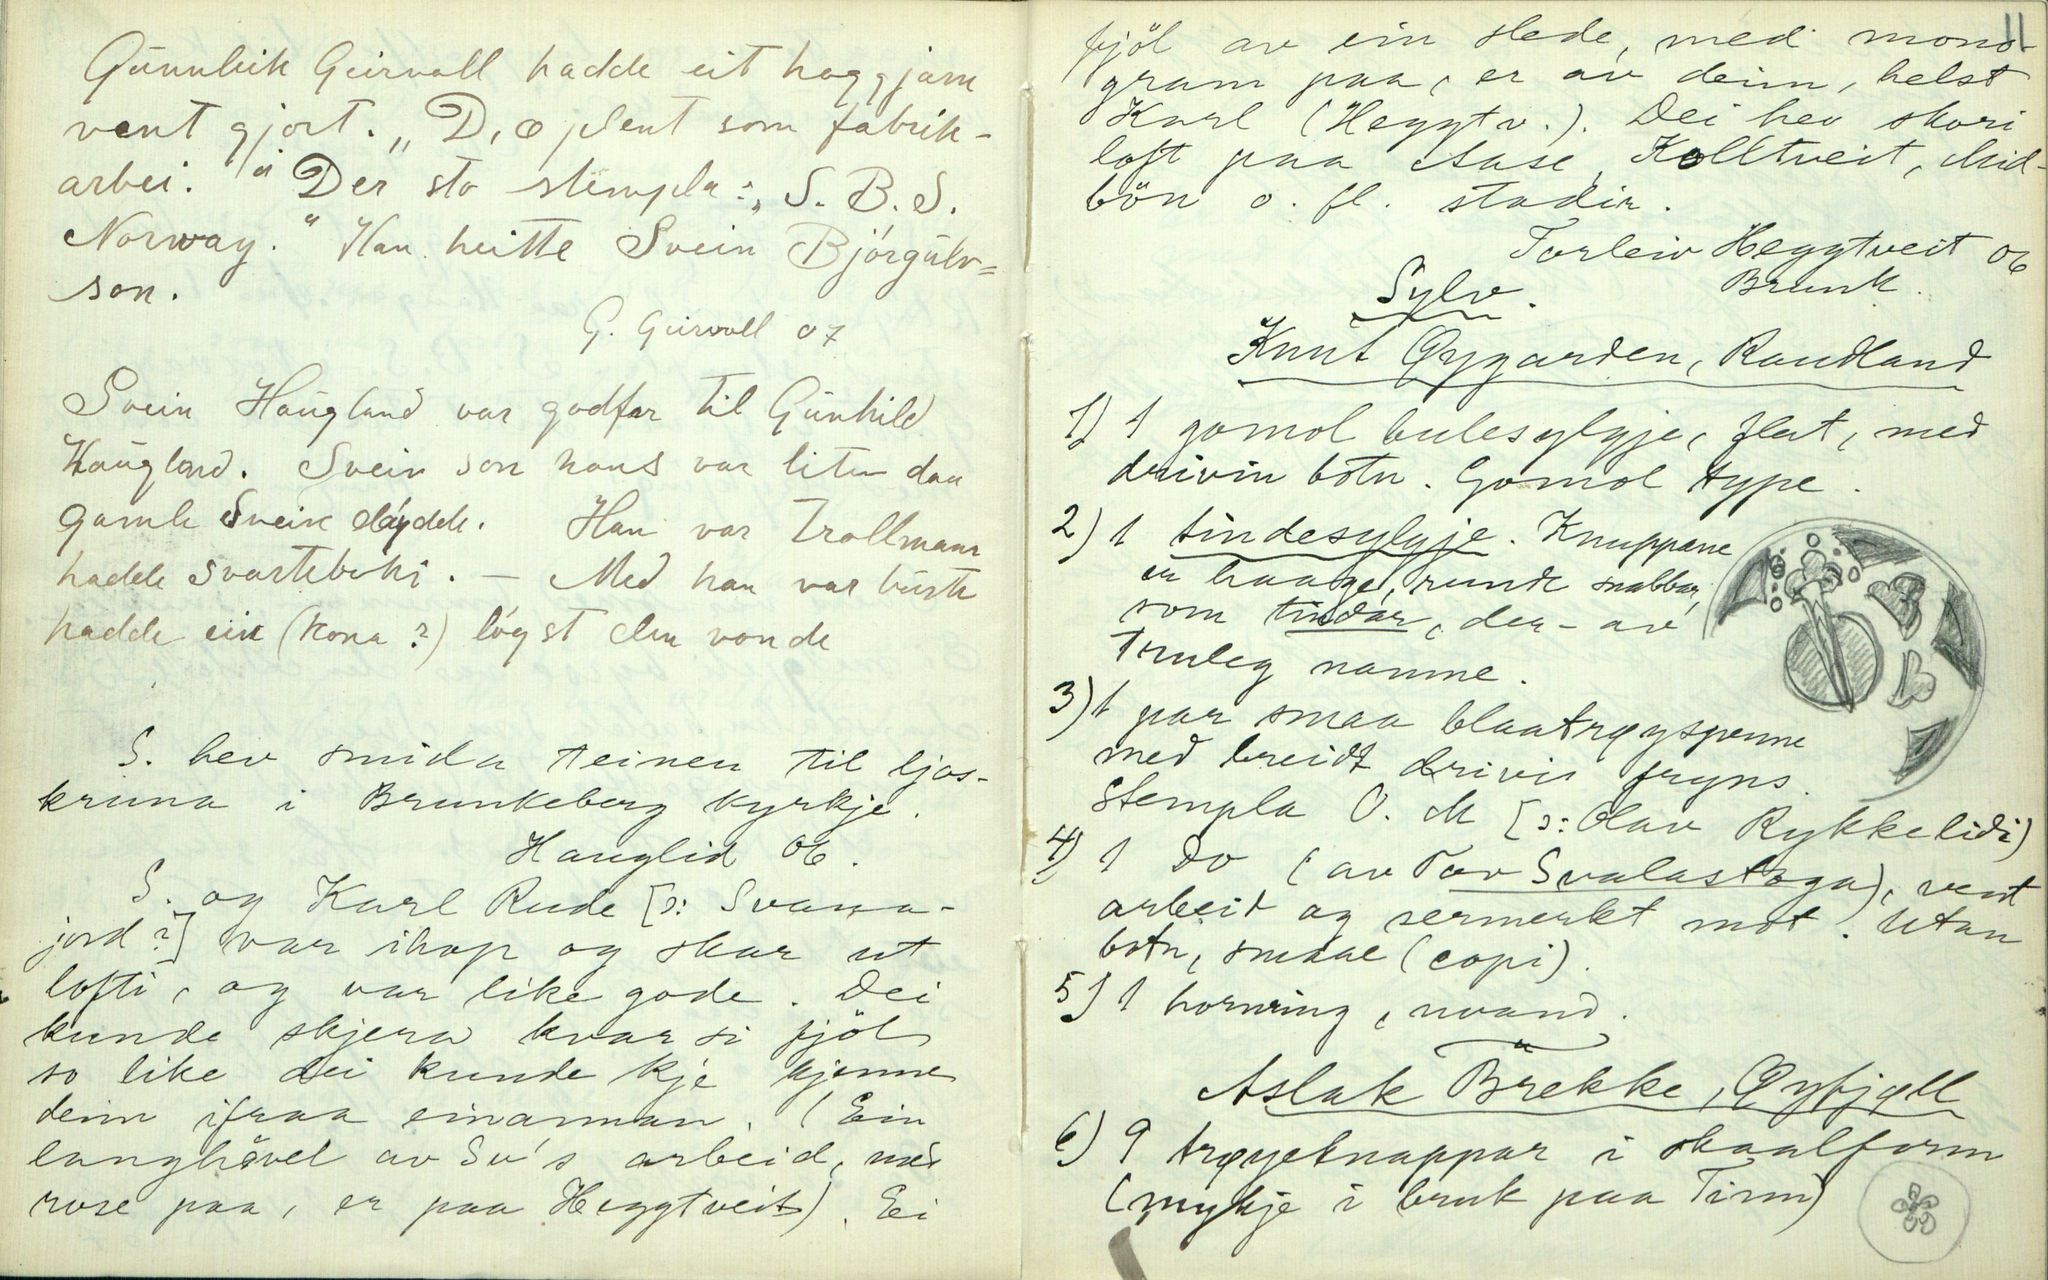 Gunnleik Geirvall hadde eit hoggjarn
vent gjort. „D, æ plent som fabrik-
arbei." Der sto stempla: „S. B. S.
Norway." Han heitte Svein Bjørgulv=
son.
G. Geirvall 07
Svein Haugland var godfar til Gunhild
Haugland. Svein son hans var liten daa
gamle Svein døydde. Han var Trollmann
hadde svarteboki. — Med han var burte
hadde ein (kona?) løyst den vonde
S. hev smida teinen til ljos-
kruna i Brunkeberg kyrkje.
Hauglid 06.
S. og Karl Rude [ɔ: Svana-
jord?] var ihop og skar ut
lofti, og var like gode. Dei
kunde skjera kvar si fjöl
so like dei kunde kje kjenne
deim ifraa einannan. (Ein
langhövel av Sv's arbeid, med
rose paa, er paa Heggtveit). Ei
11
fjöl av ein slede, med mono-
gram paa, er av deim, helst
Karl (Heggtv.). Dei hev skori
loft paa Aase, Kolltveit, Mid-
bön o. fl. stadir.
Torleiv Heggtveit 06
Brunk.
Sylv.
Knut Øygarden, Raudland
1) 1 gomol bulesylgje, flat, med
drivin botn. Gomol type.
2) 1 tindesylgje. Knuppane
er haage, runde nabbar,
som tindar, der-av
truleg namne.
3) 1 par smaa blaatrøyspenne
med breidt drivi fryns.
Stempla O. M [ɔ: Olav Rykkelidi)
4) 1 Do (av Tov Svalastoga), vent
arbeid og sermerkt mot. Utan
botn, smaae (copi).
5) 1 hornring, uvand.
Aslak Brekke, Øyfjell
6) 9 trøyeknappar i skaalform
(mykje i bruk paa Tinn)